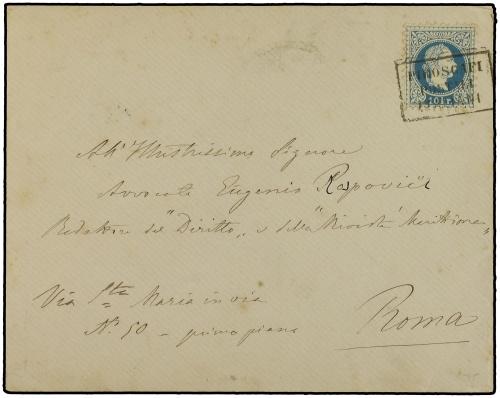 10 sld
All' Illustrissimo Signore
Avvocato Eugenio Rapovicii
Redattore del "Diritto" e della "Rivista
Via Sta Maria in via
No 50 - primo piano
Roma